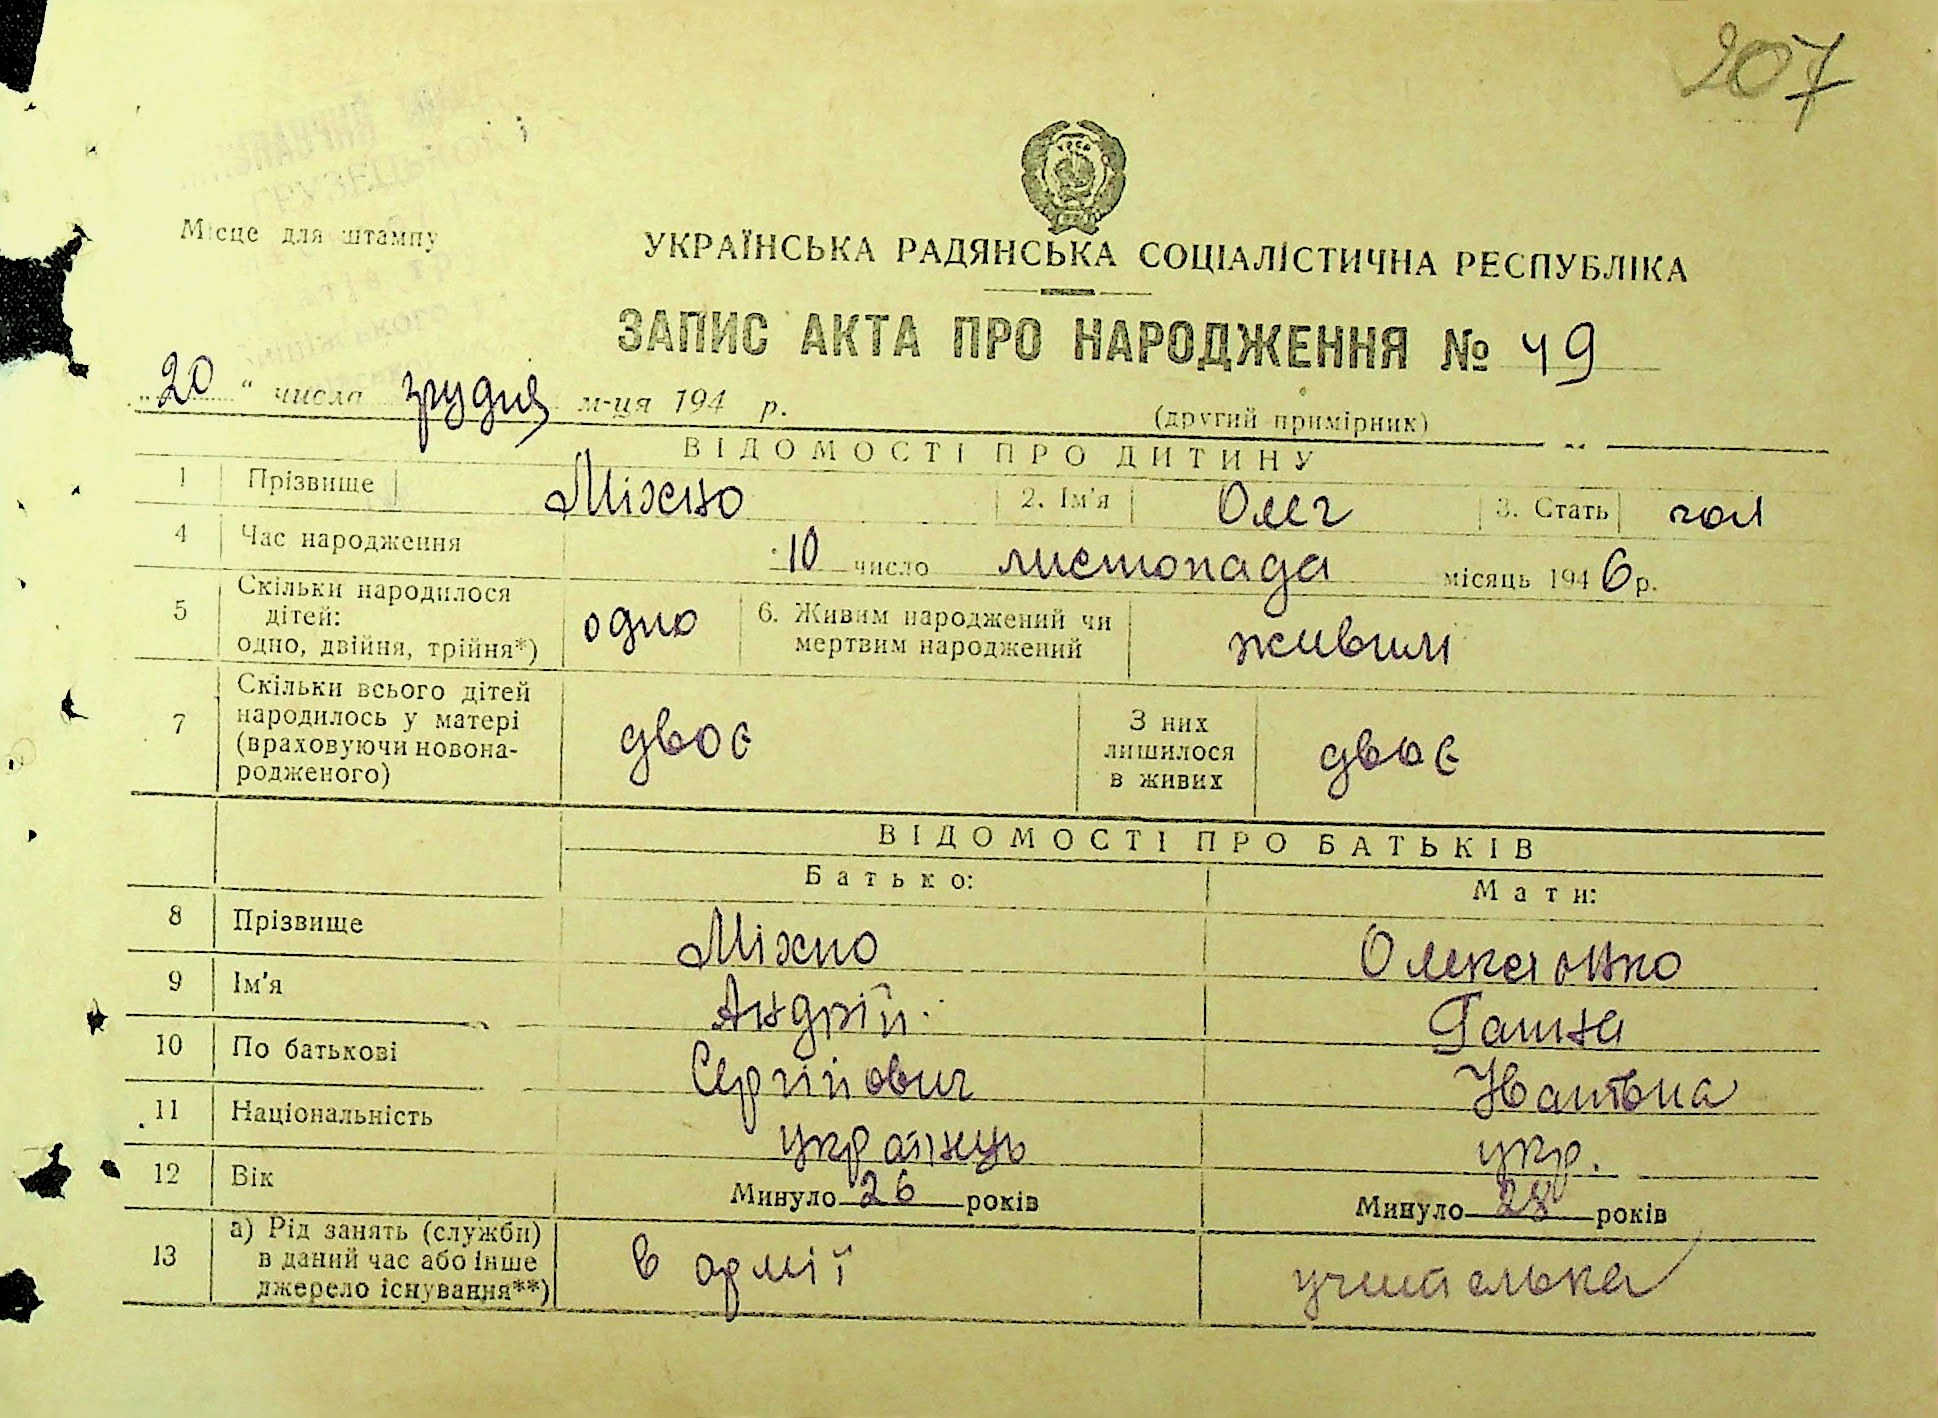 207
Місце для штампу
УКРАЇНСЬКА РАДЯНСЬКА СОЦІАЛІСТИЧНА РЕСПУБЛІКА
ЗАПИС АКТА ПРО НАРОДЖЕННЯ № 49
„20“ числа грудня м-ця 194 р.
(другий примірник)
ВІДОМОСТІ ПРО ДИТИНУ
1 Прізвище Міхно 2. Ім'я Олег 3. Стать чол
4 Час народження 10 число листопада місяць 1946 р.
5 Скільки народилося дітей: одно, двійня, трійня*) одно 6. Живим народжений чи мертвим народжений живим
7 Скільки всього дітей народилось у матері (враховуючи новона-родженого) двоє З них лишилося в живих двоє
ВІДОМОСТІ ПРО БАТЬКІВ
Батько: Мати:
8 Прізвище Міхно Олексієнко
9 Ім'я Андрій Ганна
10 По батькові Сергійович Іванівна
11 Національність українець укр.
12 Вік Минуло 26 років Минуло 28 років
13 а) Рід занять (служби) в даний час або інше джерело існування**) в армії учителька